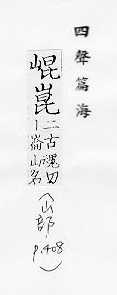 四聲篇海
崐崑
二古魂切
丨崙山名
(山部 p.408)